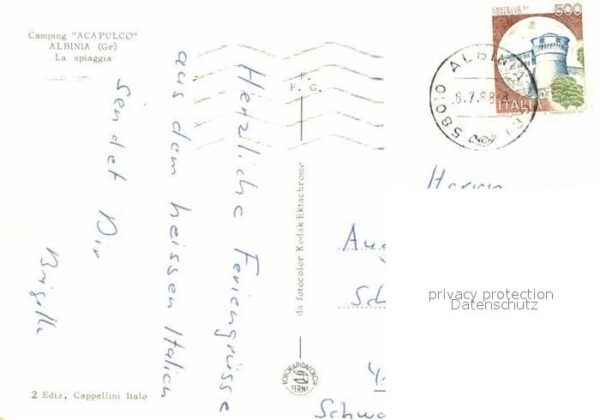 Camping "ACAPULCO"
ALBINIA (Gr)
La spiaggia
Herzliche Feriengrüsse
aus dem heissen Italien
sendet Dir
Brigitte
2 Ediz. Cappellini Italo
F. F. G.
da fotocolor Kodak Ektachrome
ROTORAPIDACOLOR
TERNI
CASTELLO DI
ROVERETO
500
ITALIA
58010 ALBINIA
6.7.88
Herrn
privacy protection
Datenschutz